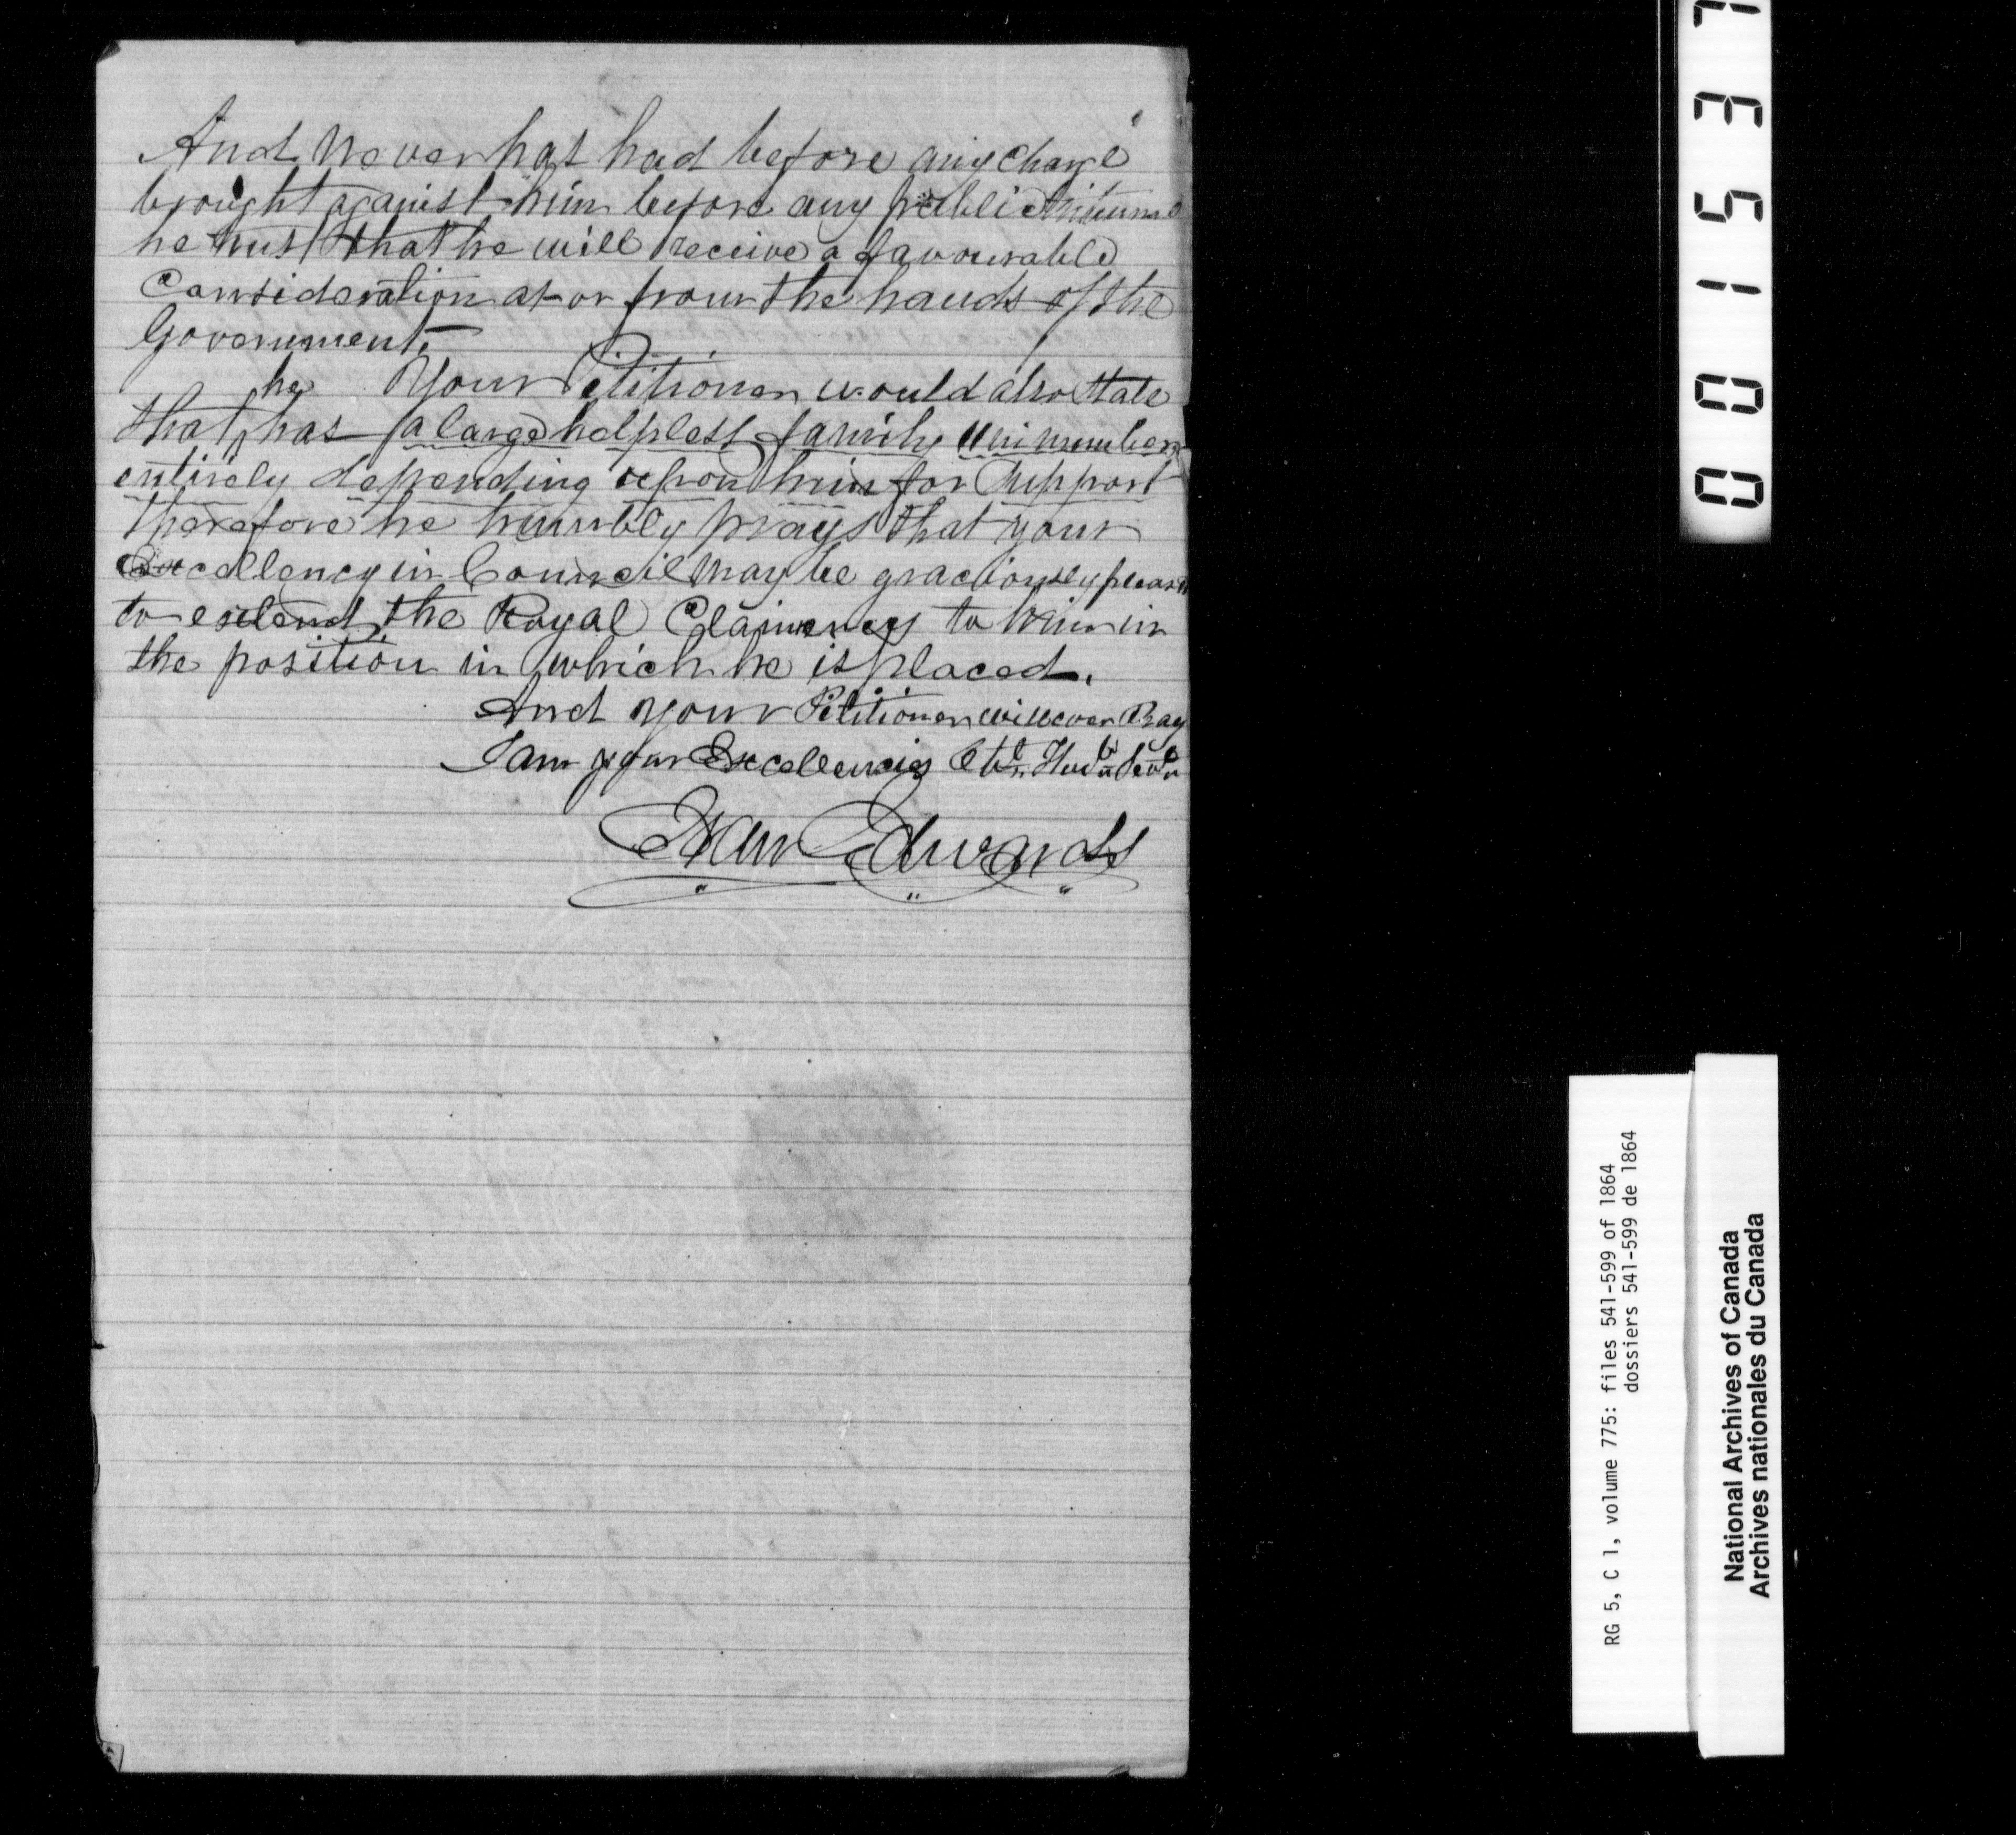 And Never has had before any charge
brought against him before any public
he trust that he will receive a favourable
Consideration at or from the hands of the
Government.
Your Petitioner would also State
that he has a large helpless family 11 in number
entirely depending upon him for Support
therefore he humbly prays that your
Excellency in Council may be graciously pleased
to extend the Royal Clamency to him in
the position in which he is placed.
And your Petitioner will ever Pray
I am your Excellencies Obt. Hub. Servt.
Evan Edwards
001537
RG 5, C 1, volume 775: files 541-599 of 1864
dossiers 541-599 de 1864
National Archives of Canada
Archives nationales du Canada